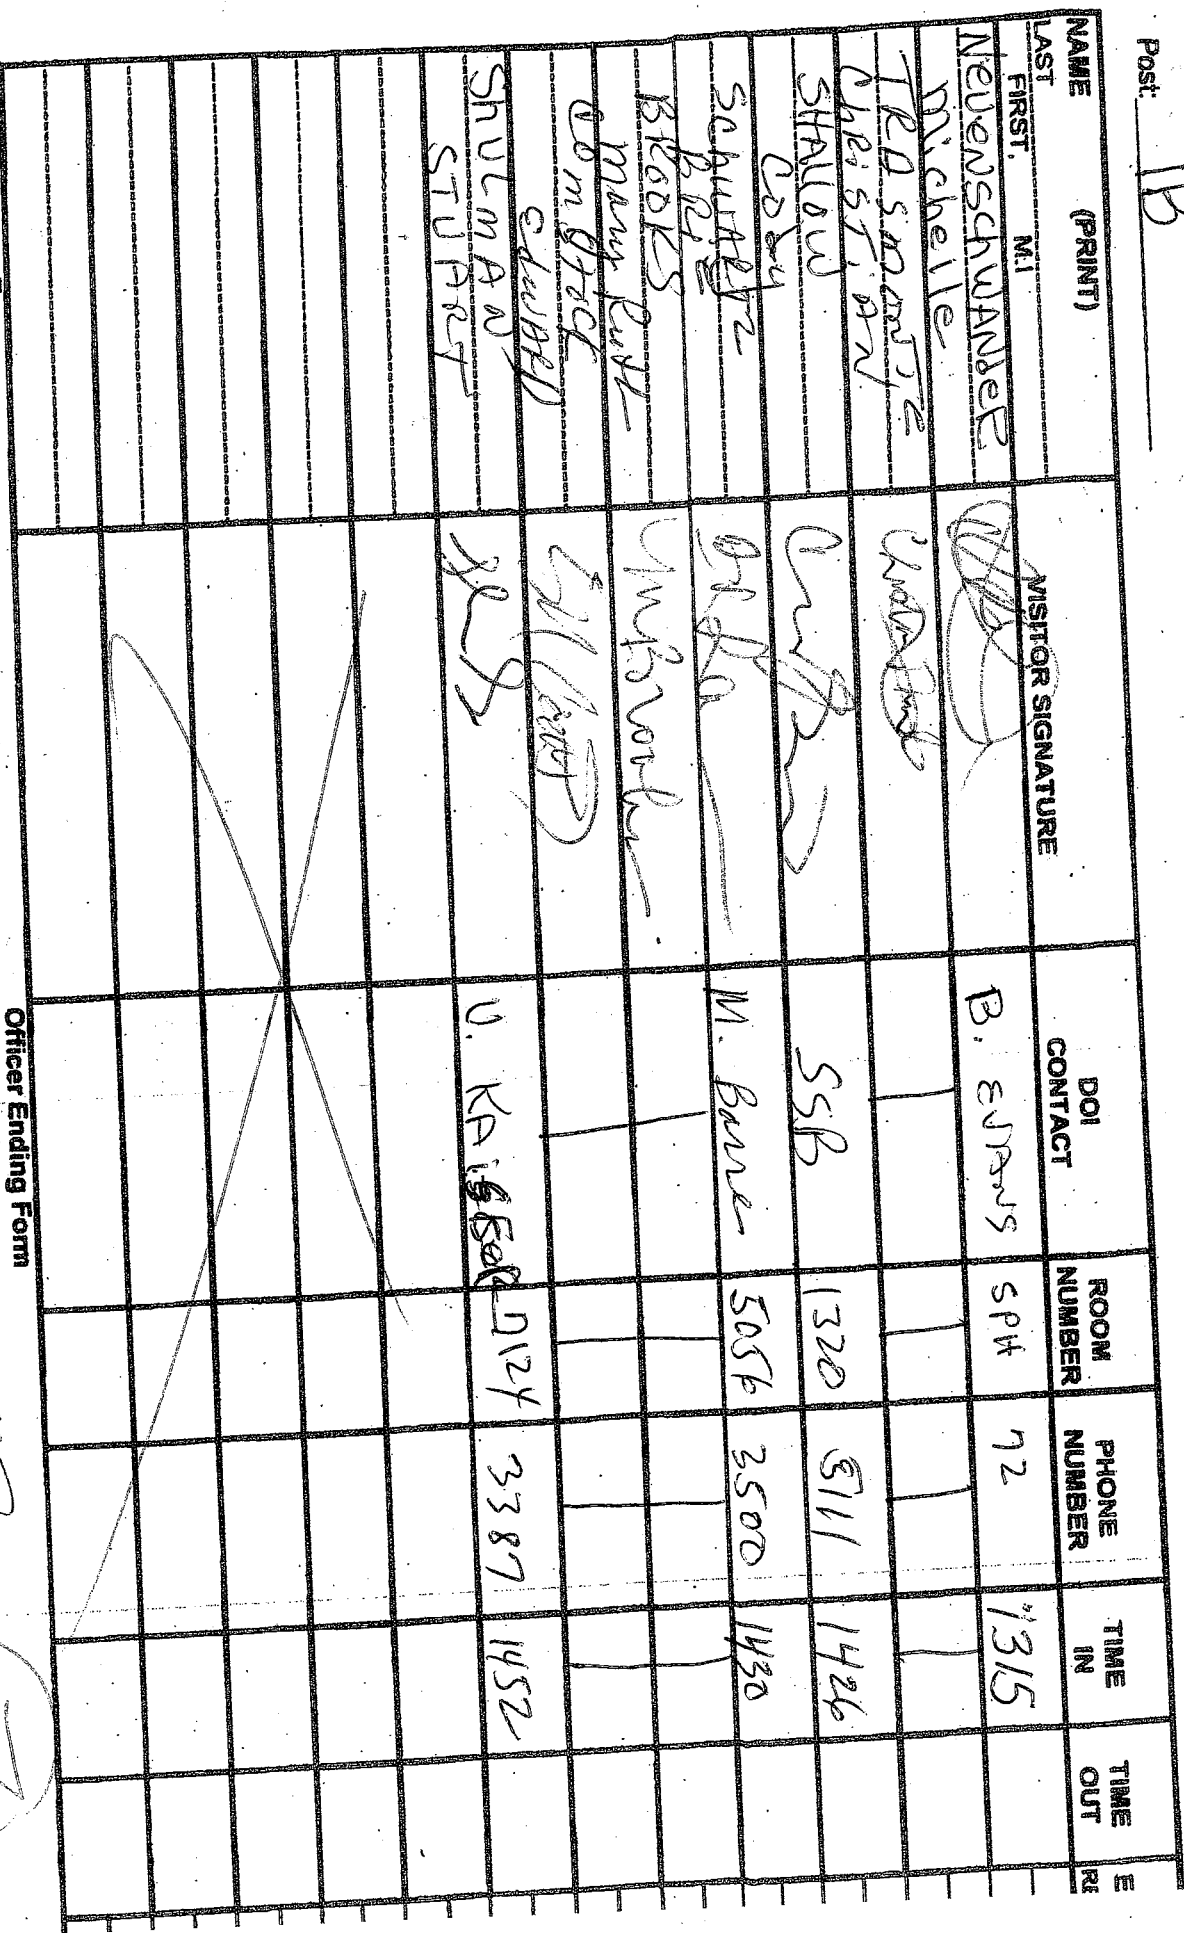 Post: 1B
NAME (PRINT)
LAST FIRST, M.I
VISITOR SIGNATURE
DOI CONTACT
ROOM NUMBER
PHONE NUMBER
TIME IN
TIME OUT
E
RE
NEUENSCHWANDER
Michelle
B. EVANS SPH 72 1315
TRASMONTE
CHRISTIAN
SHALLOW
Cory
SSB 1320 5111 1426
SCHWARTZ
M. Barre 5056 3500 1430
BROOKS
Mary Ruth
Comstock
EDWARD
SHULMAN
STUART
7124 3387 1452
Officer Ending Form